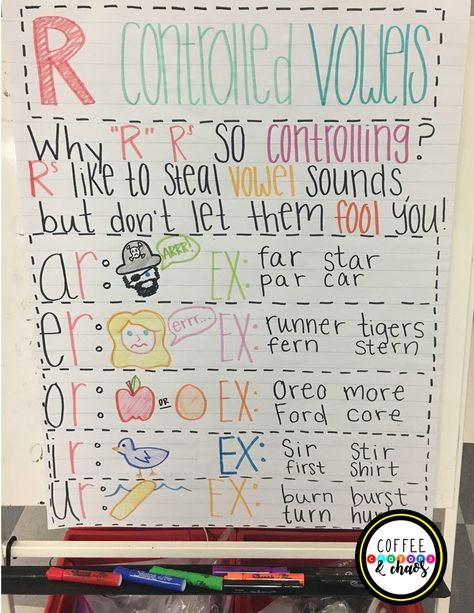 R CONTROLLED VOWELS
Why "R" Rs SO CONTROLLING?
Rs like to steal VOWEL sounds,
but don't let them FOOL you!
ar: ARRR! EX: far star
par car
er: errr... EX: runner tigers
fern stern
or: OR EX: Oreo more
Ford core
ir: EX: Sir stir
first shirt
ur: EX: burn burst
turn
COFFEE
CRAYONS
& chaos